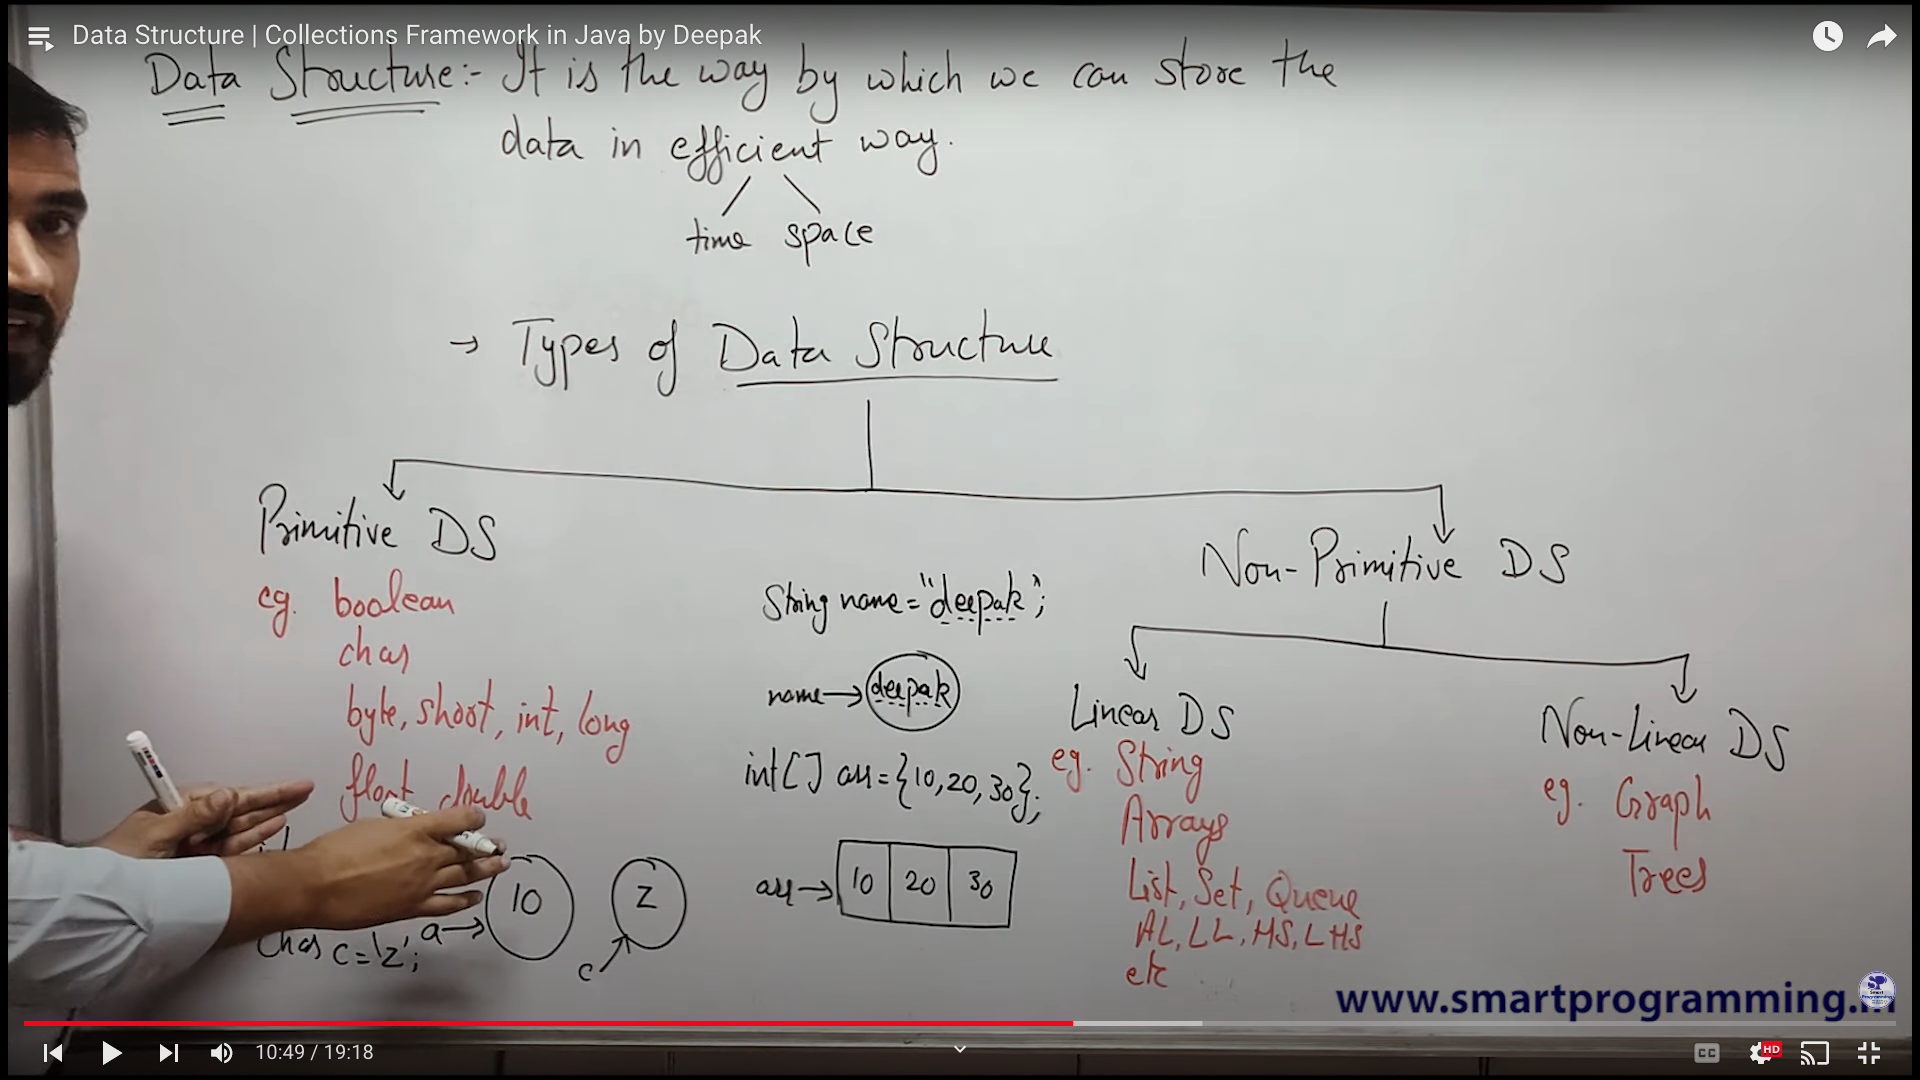 Data Structure | Collections Framework in Java by Deepak
Data Structure:- It is the way by which we can store the
data in efficient way.
time space
→ Types of Data Structure
Primitive DS
eg. boolean
char
byte, short, int, long
float, double
char c='z';
a→ 10
z
c
String name="deepak";
name→ deepak
int[] arr={10,20,30};
arr→ 10 20 30
Non-Primitive DS
Linear DS
eg. String
Arrays
List, Set, Queue
AL, LL, HS, LHS
etc
Non-Linear DS
eg. Graph
Trees
www.smartprogramming.in
10:49 / 19:18
CC
HD